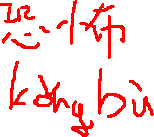 恐怖
kǒngbù